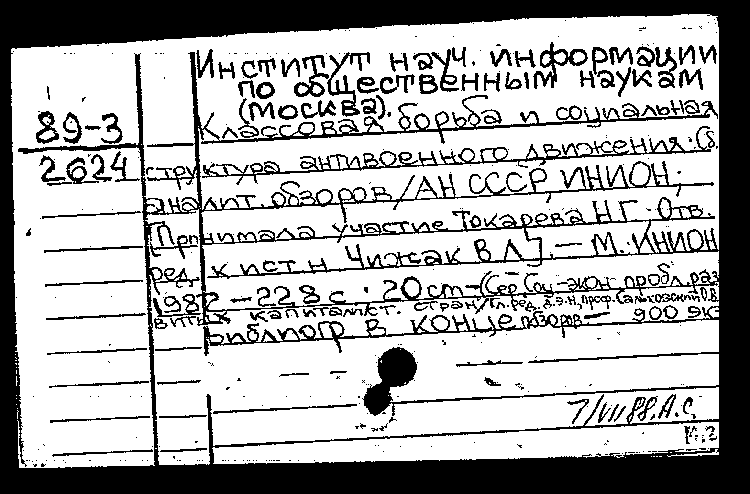 Институт науч. информации
по общественным наукам
(Москва).
89-3
2624
Классовая борьба и социальная
структура антивоенного движения: Сб.
аналит. обзоров / АН СССР, ИНИОН;
[Принимала участие Токарева Н Г; Отв.
ред. к ист н Чижак В Л]. — М. ИНИОН
1987 — 228 с. 20 cm — (Сер Соц-экон. пробл. раз
витых капиталист. стран / Гл. ред. д.э.н, проф.
Библиогр в конце обзоров. — 900 экз
7/VII 88. А. С.